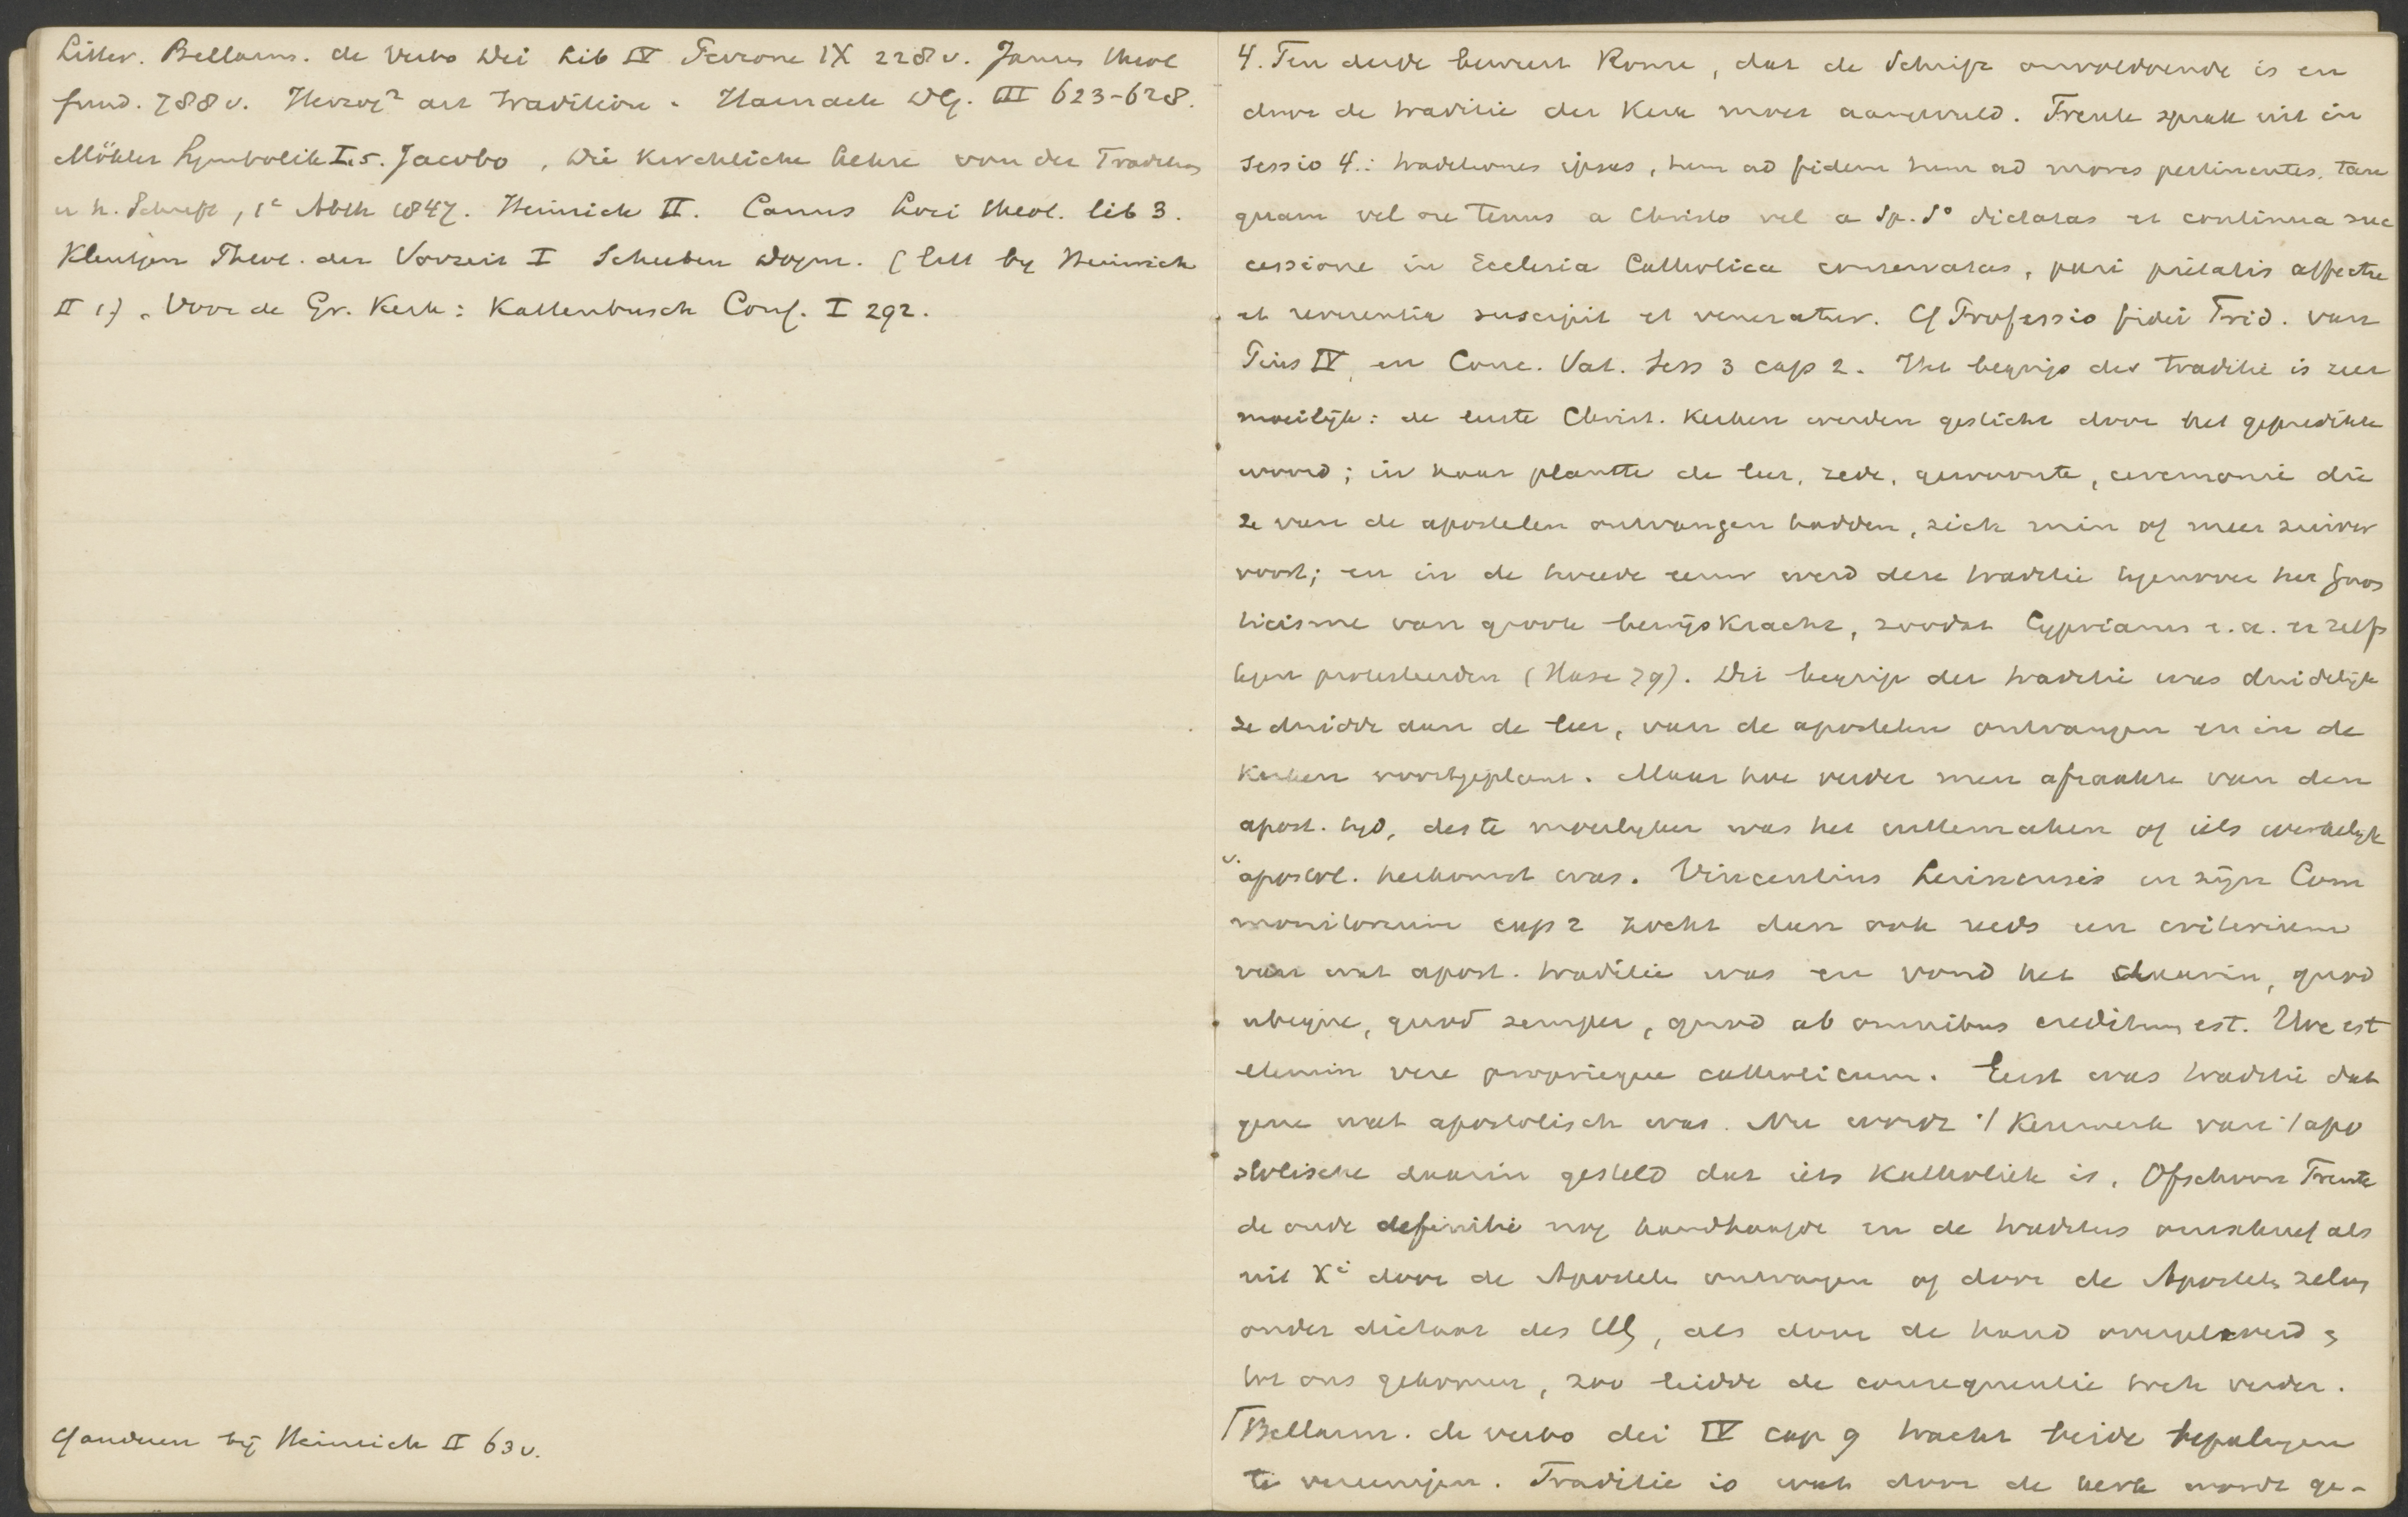 Litter. Bellarm. de Verbo Dei Lib IV Perrone IX 228 v. Jansen theol
fund. 788 v. Herzog² art Tradition. Harnack DG. III 623-628.
Möhler Symbolik I.5. Jacobo, die Kirchliche Lehre von der Tradition
u h. Schrift, 1e Abth 1847. Heinrich II. Canus Loci theol. lib 3.
Kleutgen Theol. der Vorzeit I Scheeben Dogm. (litt by Heinrich
II 1). Voor de Gr. Kerk: Kattenbusch Conf. I 292.
Cf anderen bij Heinrich II 63 v.
4. Ten derde beweert Rome, dat de Schrift onvoldoende is en
door de traditie der Kerk moet aangevuld. Trente sprak uit in
sessio 4.: traditiones ipsas, tum ad fidem tum ad mores pertinentes, tan
quam vel ore tenus a Christo vel a Sp. So dictatas et continua suc
cessione in Ecclesia Catholica conservatas, pari pietatis affectu
et reverentia suscipit et veneratur. Cf Professio fidei Trid. van
Pius IV, en Conc. Vat. Sess 3 cap 2. Het begrip der traditie is zeer
moeilijk: de eerste Christ. Kerken werden gesticht door het gepredikte
woord; in haar plantte de leer, zede, gewoonte, ceremonie die
ze van de apostelen ontvangen hadden, zich min of meer zuiver
voort; en in de tweede eeuw werd deze traditie tegenover het Gnos
ticisme van groote bewijskracht, zoodat Cyprianus e.a. er zelfs
tegen protesteerden (Hase 79). Dit begrip der traditie was duidelijk
ze duidde aan de leer, van de apostelen ontvangen en in de
Kerken voortgeplant. Maar hoe verder men afraakte van den
apost. tijd, des te moeilyker was het uittemaken of iets werkelijk
v. apostol. herkomst was. Vincentius Lerinensis in zijn Com
monitorium cap 2 zocht dan ook reeds een criterium
van wat apost. traditie was en vond het daarin, quod
ubique, quod semper, quod ab omnibus creditum est. Hoc est
etenim vere proprieque catholicum. Eerst was traditie dat
gene wat apostolisch was. Nu wordt 't Kenmerk van 't apo
stolische daarin gesteld dat iets Katholiek is. Ofschoon Trente
de oude definitie nog handhaafde en de traditus omschreef als
uit Xi door de Apostels ontvangen of door de Apostels zelve
onder dictaat des HG, als door de hand overgeleverd &
tot ons gekomen, zoo leidde de consequentie toch verder.
⌈Bellarm. de verbo dei IV cap 9 tracht beide bepalingen
te vereenigen. Traditie is wat door de kerk wordt ge-